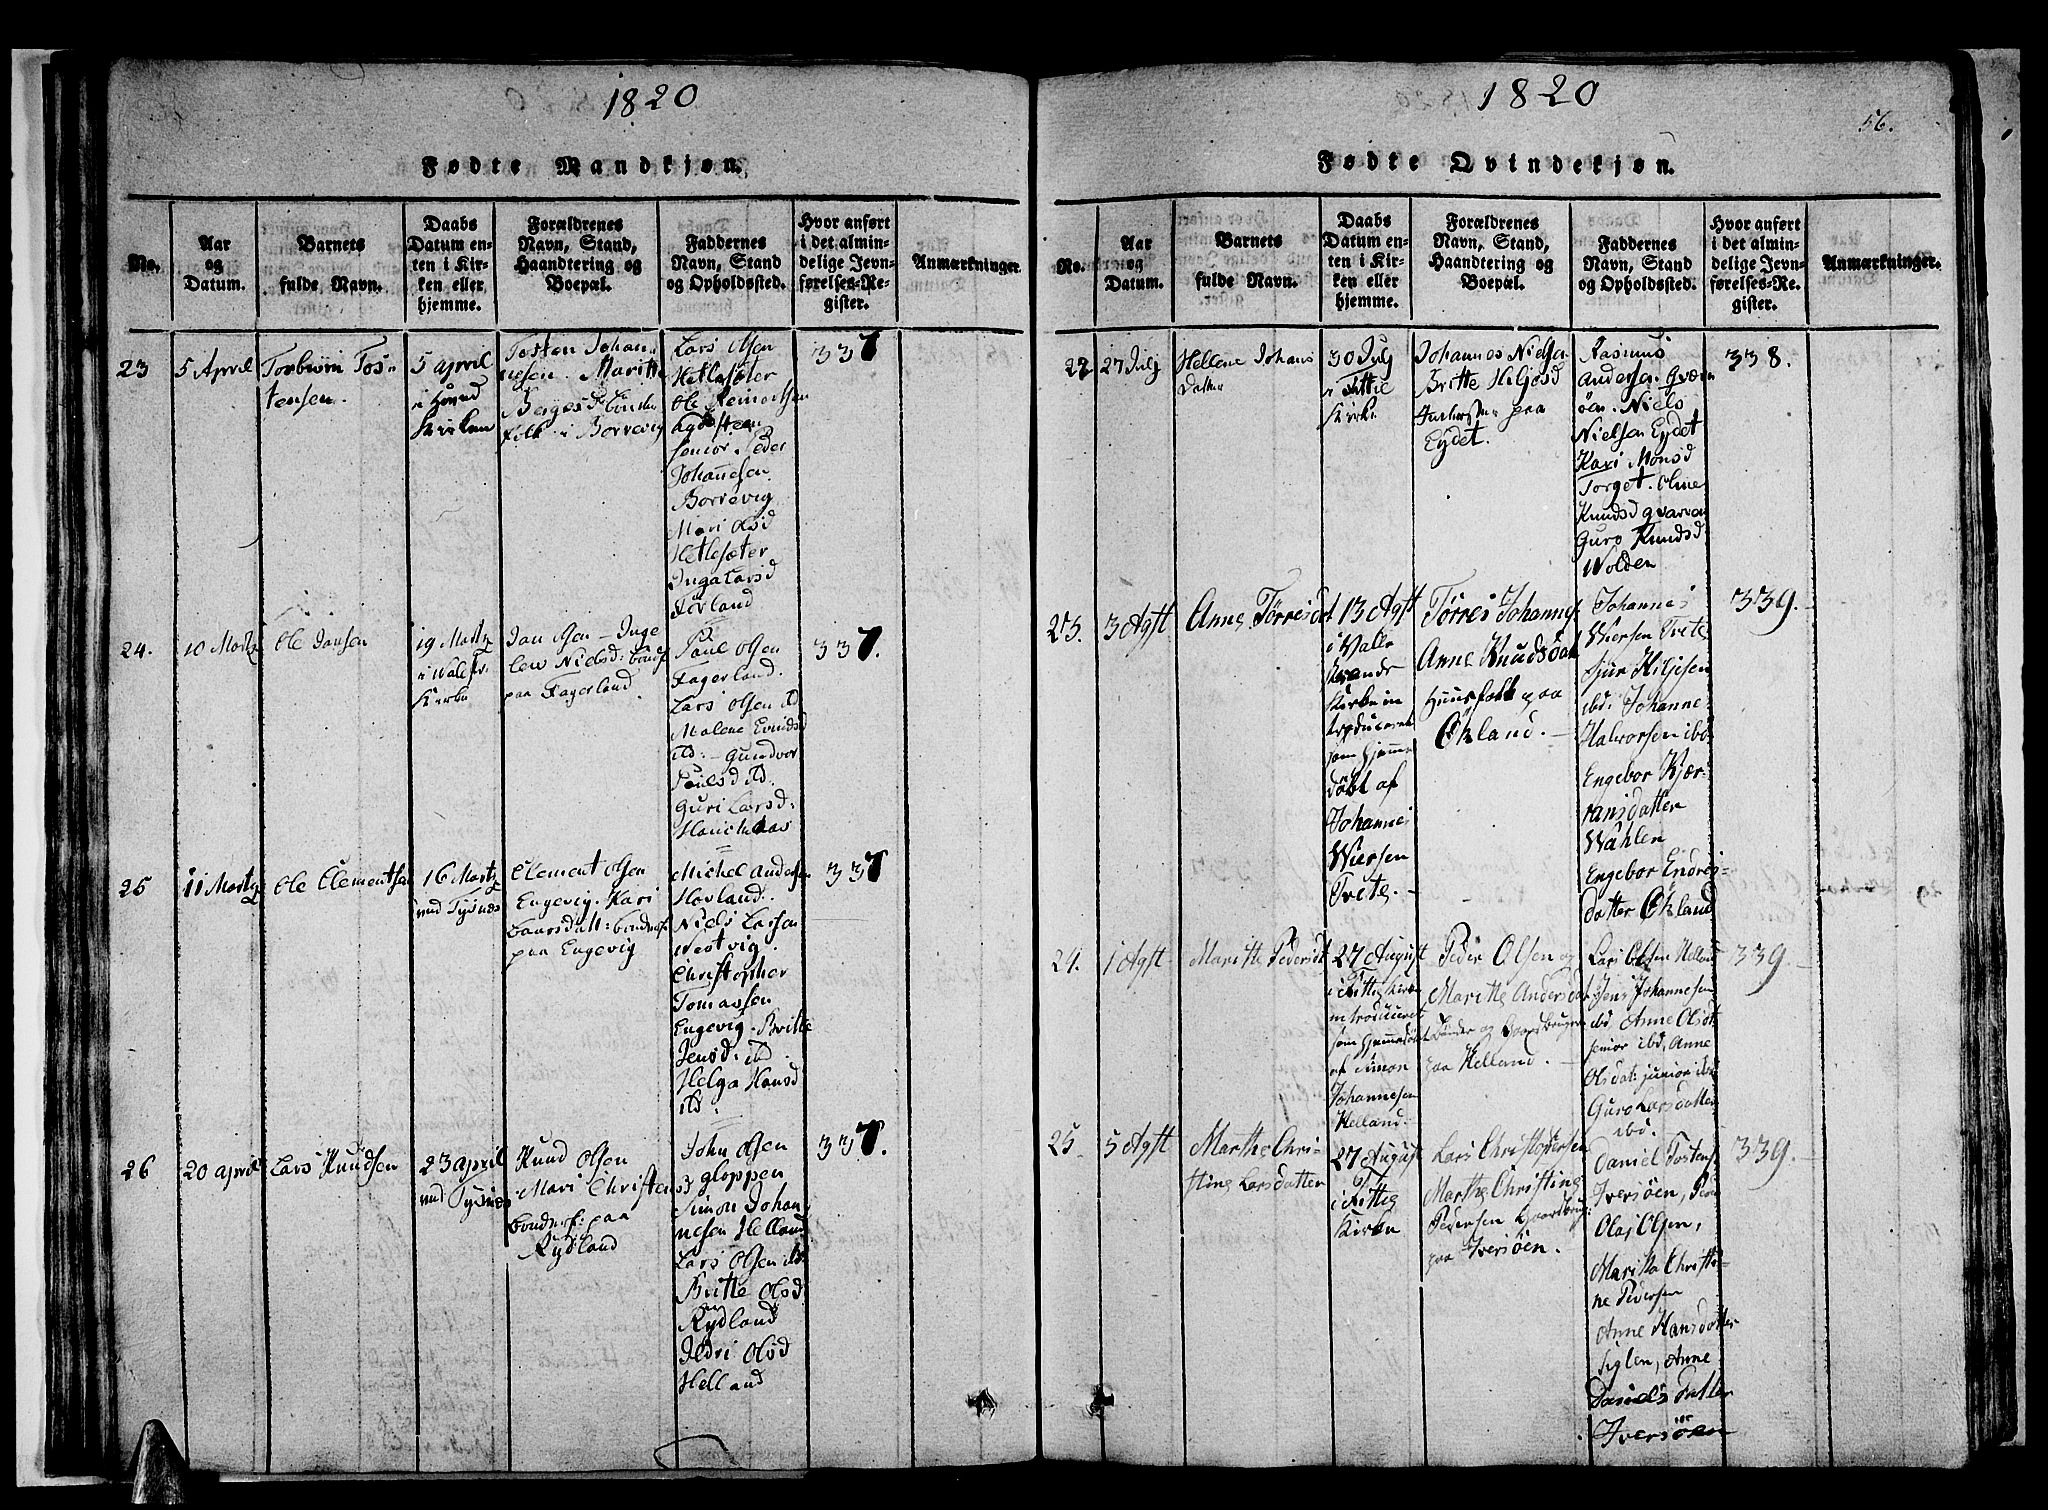 1820
Fødte Mandkjøn.
No.
Aar
og
Datum.
Barnets
fulde Navn.
Daabs
Datum en-
ten i Kir-
ken eller
hjemme.
Forældrenes
Navn, Stand,
Haandtering og
Boepæl.
Faddernes
Navn, Stand
og Opholdssted.
Hvor anført
i det almin-
delige Jevn-
førelses-Re-
gister.
Anmærkninger.
23
5 April
Torbiørn Tos-
tensen.
5 april
i
Kirken
Tosten Johan-
nesen. Maritte
Børrevig
Lars Olsen
Hetlesæter
Ole
senior. Peder
Johannesen
Borrevig
Mari Olsd
Hetlesæter
Inga Larsd
Førland
337
24.
10 Martz
Ole Jansen
19 Martz
i
Kirke
Jan Olsen - Inge
len Nielsd: bondf
paa Fagerland.
Paul Olsen
Fagerland.
Lars Olsen ibd
Malene
ibd: - Gundvor
Paulsd ibd.
Guri Larsd:
337.
25
11 Martz
Ole Clementsen
16 Martz
ved Tysnes
Clement Olsen
Engevig. Kari
Laursdatt: bondef
paa Engevig
Michel Andersen
Hovland.
Niels Larsen
Westvig.
Christopher
Tomassen
Engevig. Britte
Jensd: ibd
Helga Hansd
ibd.
337
26
20 april
Lars Knudsen
23 april
ved Tysnes
Knud Olsen
Mari Christensd
bondef: paa
Rydland
John Olsen
gloppen
Simon Johan-
nesen Helland
Lars Olsen ib
Britte Olsd
Rydland
Olsd
Helland
337.
1820
56.
Fødte Qvindekjøn.
No.
Aar
og
Datum.
Barnets
fulde Navn.
Daabs
Datum en-
ten i Kir-
ken eller
hjemme.
Forældrenes
Navn, Stand,
Haandtering og
Boepæl.
Faddernes
Navn, Stand
og Opholdssted.
Hvor anført
i det almin-
delige Jevn-
førelses-Re-
gister.
Anmærkninger.
22
27 Julj
Hellene Johans
Datter
30 Julj
i Fittie
Kirke
Johannes Nielsen
Britte Hiljesd
paa
Eydet.
Rasmus
Andersen. Qværn
øen. Niels
Nielsen Eydet
Kari Monsd
Torget. Oline
Knudsd qvarven
Guro Knudsd
Wolden
338.
23.
3 Agst
Anne Tørresdat
13 Agst
i Valle
strands
Kirke in
troduceret
som hjemme
døbt af
Johannes
Wiersen
Tvete. -
Tørres Johannes.
Anne Knudsdat
Huusfolk paa
Økland. -
Johannes
Wiersen Tvete
Siur Hiljesen
ibd. Johanne
Halvorsen ibd
Engebor Kjær-
ransdatter
Wahlen
Engebor Endres-
datter Økland
339.
24.
1 Agst
Maritte Pedersdt
27 August
i Fittie Kirke
introduceret
som hjemmedøbt
af Simon
Johannesen
Helland.
Peder Olsen og
Maritte Andersdat
Bønder og Gaardbrugere
paa Helland. -
Lars Olsen Helland
Jens Johannesen
ibd, Anne Olsdt
senior ibd, Anne
Olsdat: junior ibd
Guro Larsdatter
ibd.
339.
25
5 Agst
Marthe Chri-
stine Larsdatter
27 August
i Fittie
Kirke
Lars Christophersen
Marthe Christine
Pedersen Gaardbrug:
paa Iversøen.
Daniel Tostens
Iversøen, Peder
Olaj Olsen,
Maritta Christi-
ne Pedersen
Anne Hansdatter
Siglen, Anne
Daniels Datter
Iversøen
339.